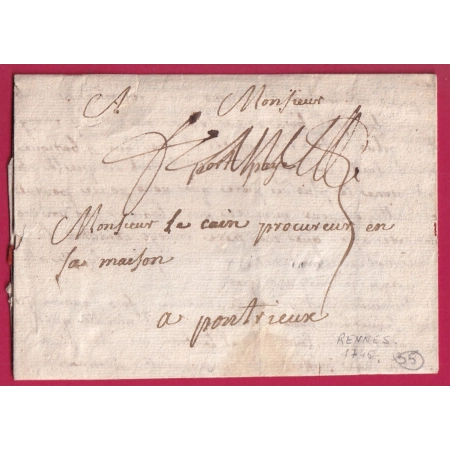 A Monsieur
port paye
Monsieur Le cain procureur en
sa maison
a pontrieux
RENNES.
1745. 35